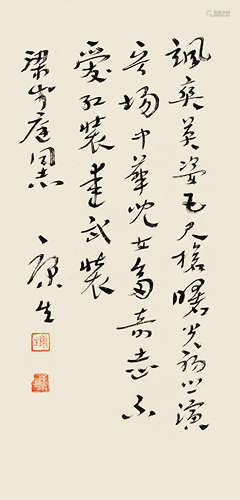 飒爽英姿五尺枪曙光初照演
兵场中华儿女多奇志不
爱红装爱武装
梁岑庭同志
康生